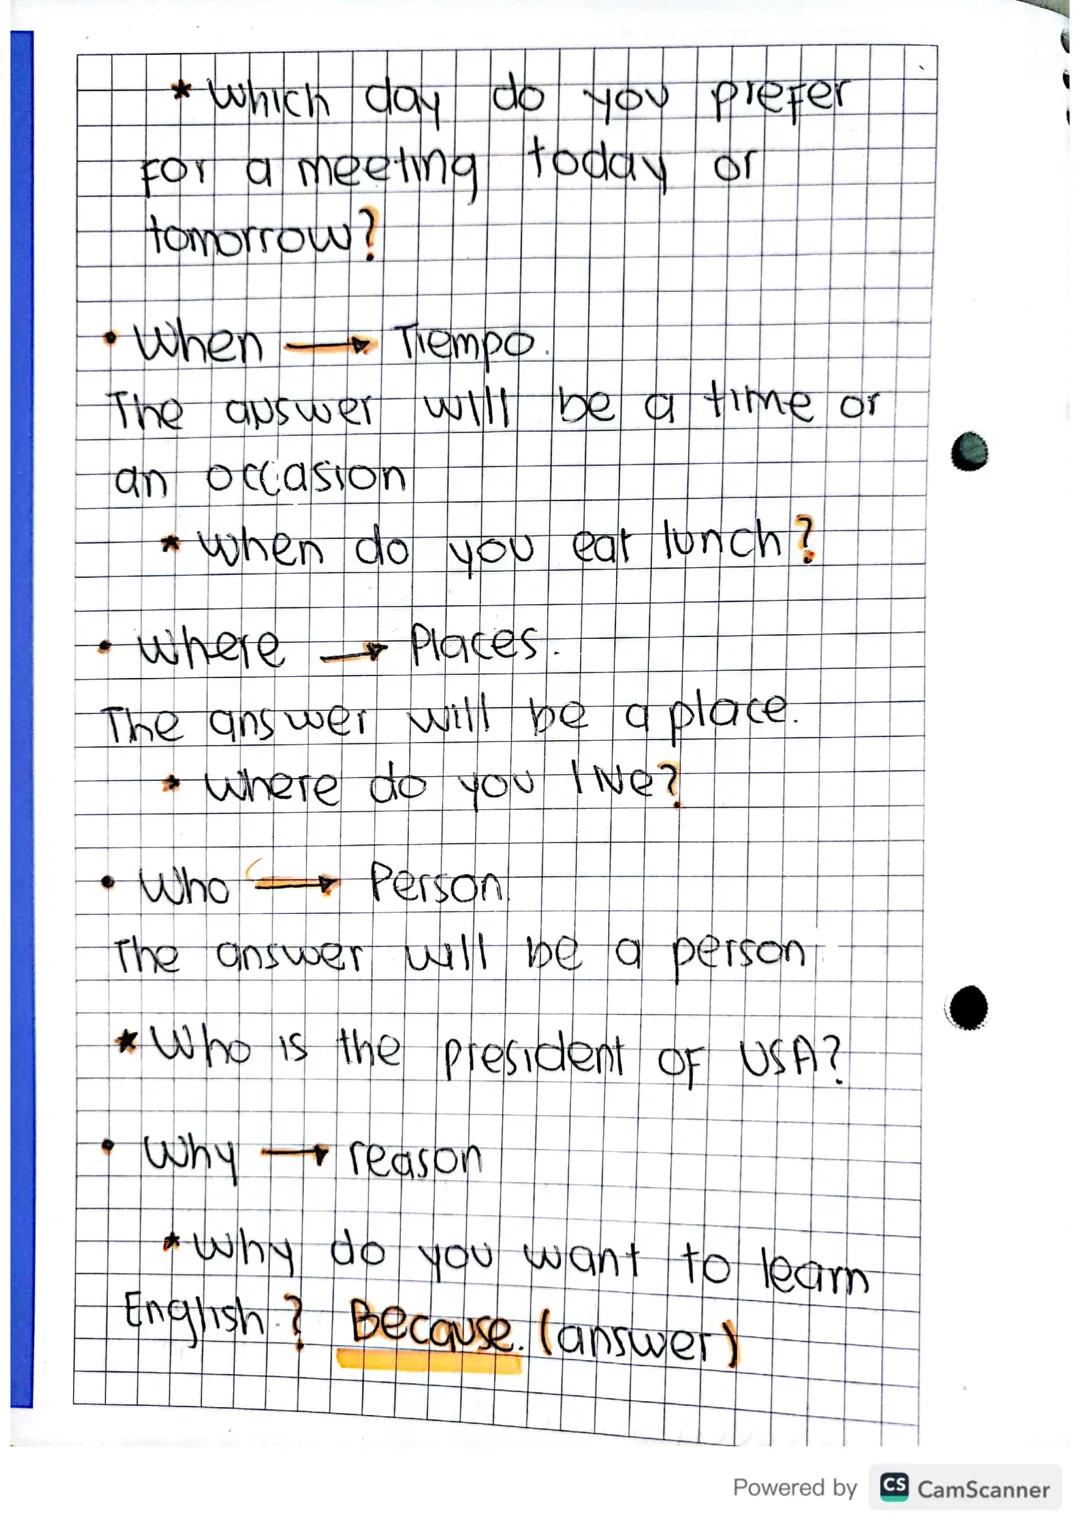 * Which day do you prefer
for a meeting today or
tomorrow?
• When → Tiempo.
The answer will be a time or
an occasion
* When do you eat lunch?
• Where → Places.
The answer will be a place.
* Where do you live?
• Who → Person.
The answer will be a person
* Who is the president of USA?
• Why → reason
* Why do you want to learn
English? Because. (answer)
Powered by CS CamScanner